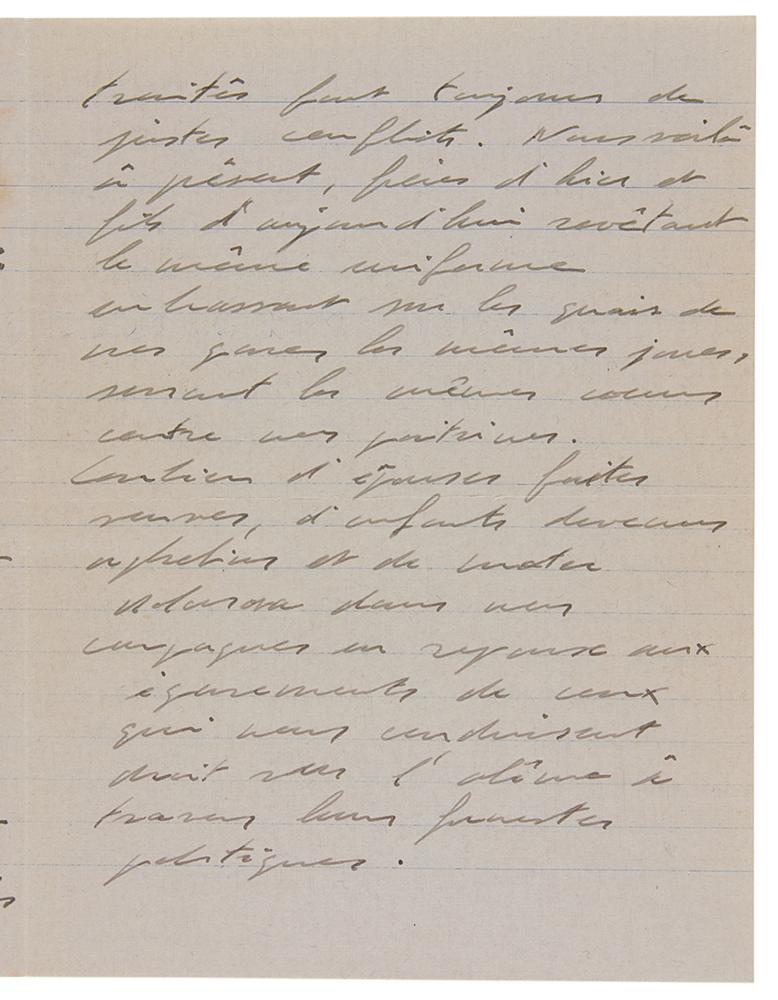 traités font toujours de
justes conflits. Nous voilà
à présent, frères d'hier et
fils d'aujourd'hui revêtant
le même uniforme
embrassant sur les quais de
nos gares les mêmes joues,
serrant les mêmes coeurs
contre nos poitrines.
Combien d'épouses faites
veuves, d'enfants devenus
orphelins et de mater
dolorosa dans nos
campagnes en réponse aux
égarements de ceux
qui nous conduisent
droit vers l'abîme à
travers leurs funestes
politiques.